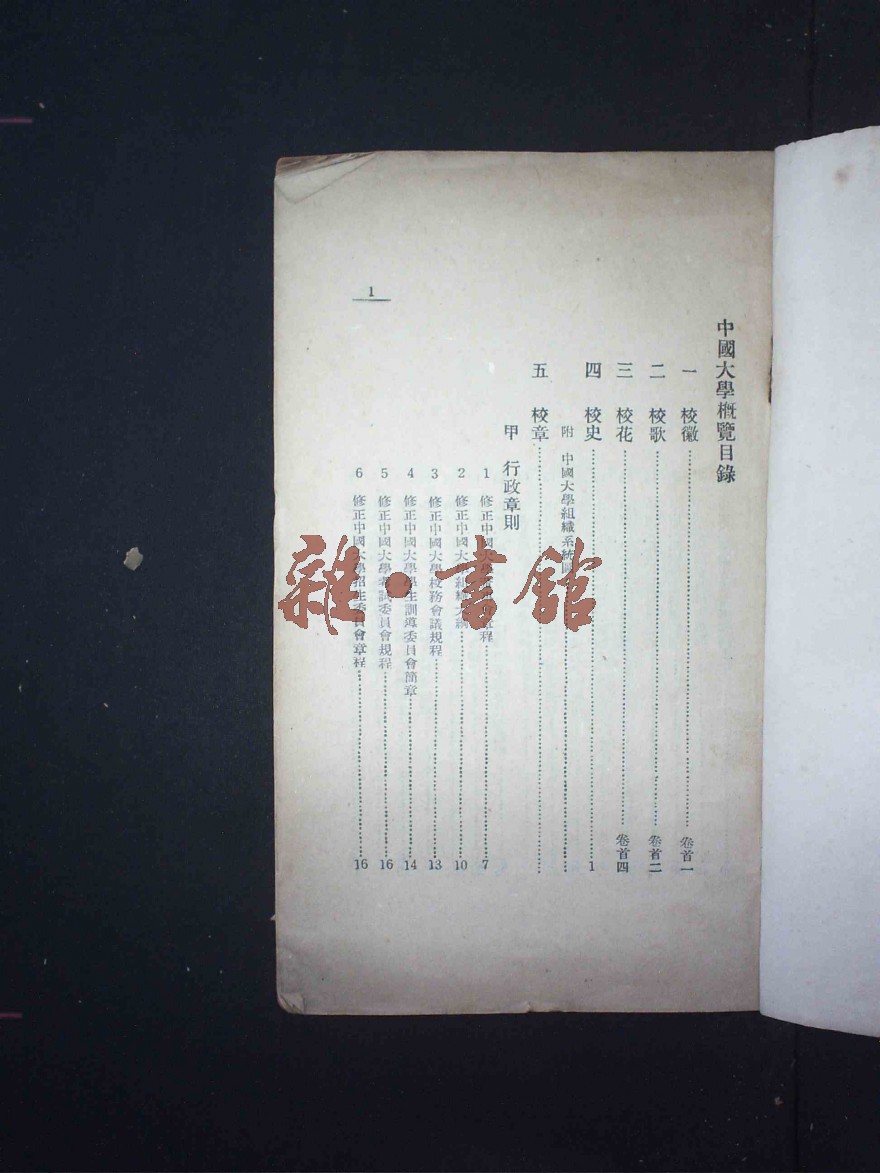 中國大學概覽目錄
一 校徽 卷首一
二 校歌 卷首二
三 校花 卷首四
四 校史 1
附 中國大學組織系統圖
五 校章
甲 行政章則
1 修正中國大學 章程 7
2 修正中國大學組織大綱 10
3 修正中國大學校務會議規程 13
4 修正中國大學學生訓導委員會簡章 14
5 修正中國大學考試委員會規程 16
6 修正中國大學招生委員會章程 16
1
雜·書館